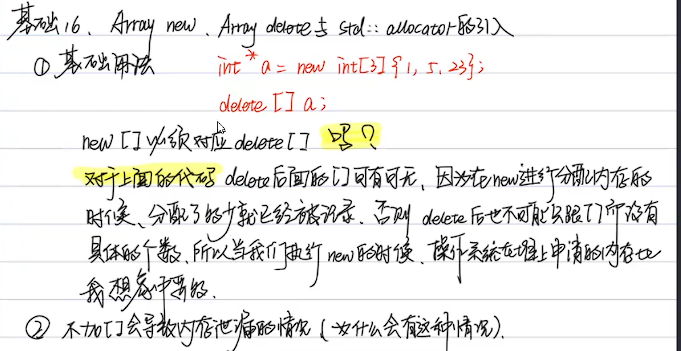 基础16、Array new、Array delete与 std::allocator的引入
① 基础用法 int* a = new int[3]{1, 5, 23};
delete [] a;
new [] 必须对应 delete[] 吗？
对于上面的代码 delete后面的[]可有可无、因为在new进行分配内存的
时候、分配了多少就已经被记录、否则 delete后也不可能只跟[]而没有
具体的个数、所以当我们执行new的时候、操作系统在堆上申请的内存比
我想象中要的、
② 不加[]会导致内存泄漏的情况（为什么会有这种情况）、